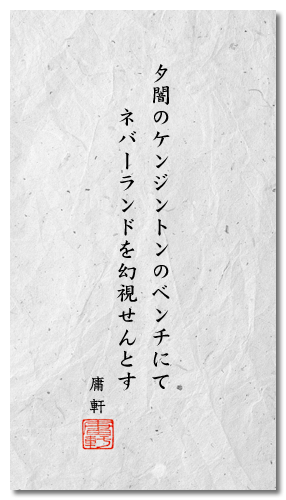 夕闇のケンジントンのベンチにて
ネバーランドを幻視せんとす
庸軒